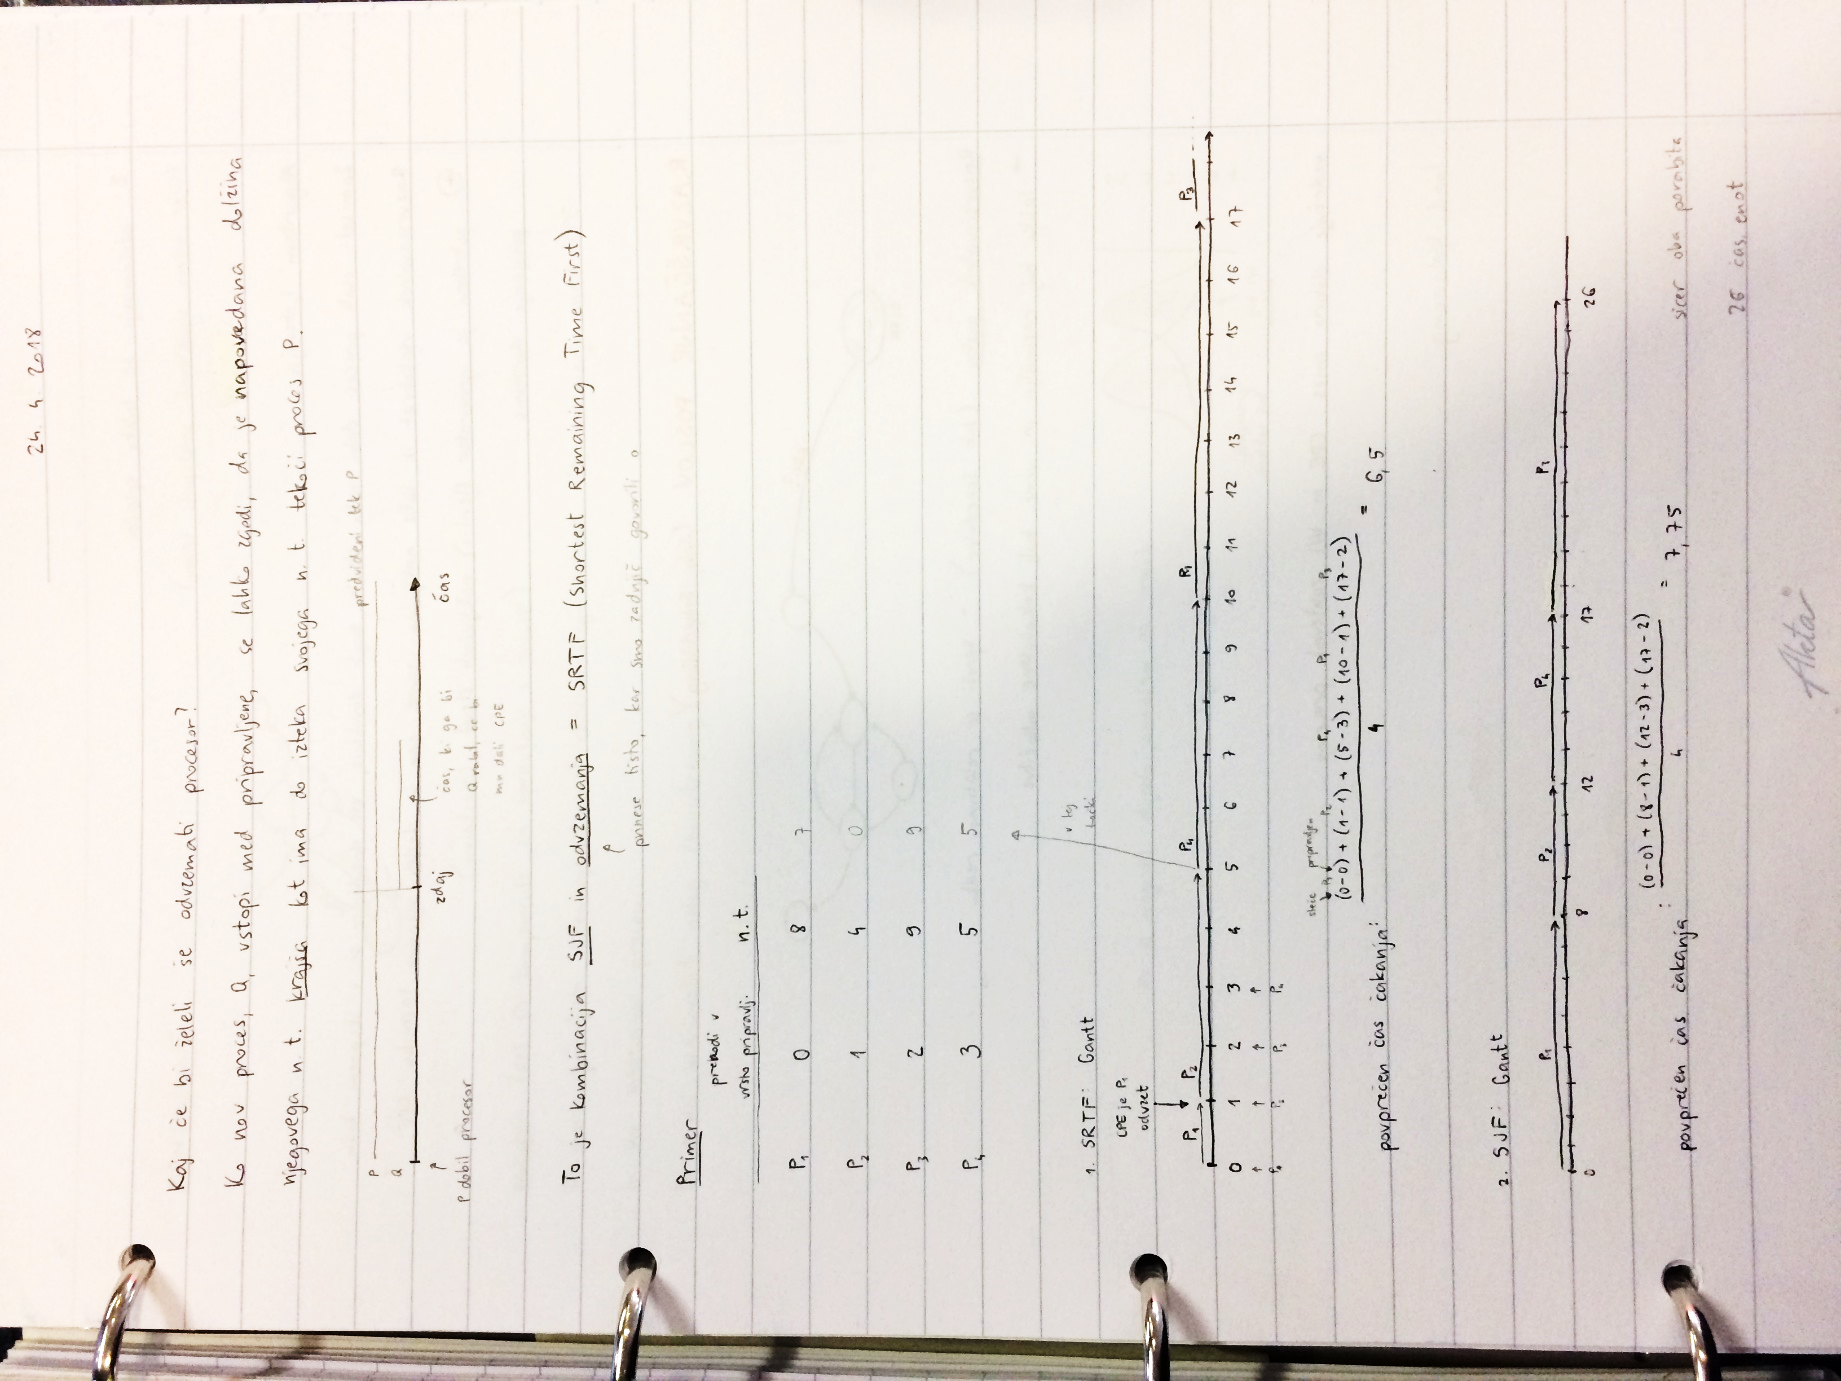 24. 4. 2018
Kaj če bi želeli še odvzemati procesor?
Ko nov proces, Q, vstopi med pripravljene, se lahko zgodi, da je napovedana dolžina
njegovega n. t. krajša kot ima do izteka svojega n. t. tekoči proces P.
predvideni tek P
P
Q
zdaj
čas
P dobil procesor
čas, ki ga bi
Q rabil, če bi
mu dali CPE
To je kombinacija SJF in odvzemanja = SRTF (Shortest Remaining Time First)
prinese tisto, kar smo zadnjič govorili
Primer
prehodi v
vrsto pripravlj. n. t.
P1 0 8 7
P2 1 4 0
P3 2 9 9
P4 3 5 5
v tej
točki
1. SRTF: Gantt
CPE je P1
odvzet
P1 P2 P4 P1 P3
0 1 2 3 4 5 6 7 8 9 10 11 12 13 14 15 16 17
steče pripravljen
P1 P2 P4 P1 P3
povprečen čas čakanja: (0-0)+(1-1)+(5-3)+(10-1)+(17-2) / 4 = 6,5
2. SJF: Gantt
P1 P2 P4 P3
0 8 12 17 26
povprečen čas čakanja: (0-0)+(8-1)+(12-3)+(17-2) / 4 = 7,75
sicer oba porabita
26 čas. enot